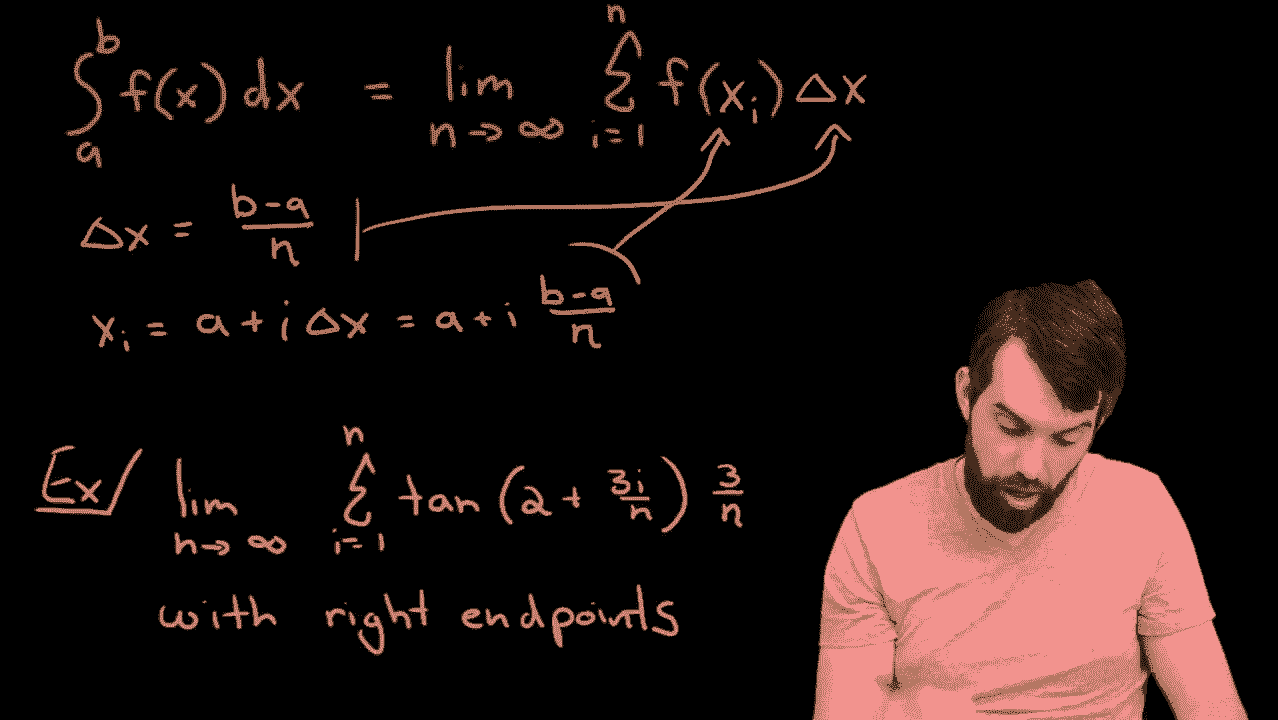 ∫_a^b f(x) dx = lim_{n→∞} Σ_{i=1}^{n} f(x_i) Δx
Δx = (b-a)/n
x_i = a + i Δx = a + i (b-a)/n
Ex/ lim_{n→∞} Σ_{i=1}^{n} tan (2 + 3i/n) 3/n
with right endpoints